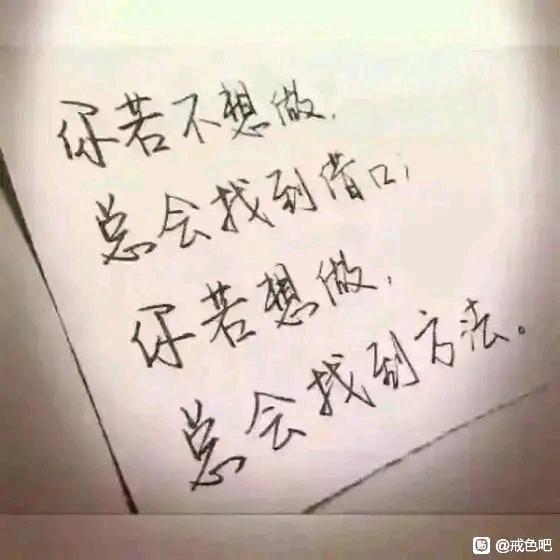 你若不想做,
总会找到借口;
你若想做,
总会找到方法。
贴 @戒色吧